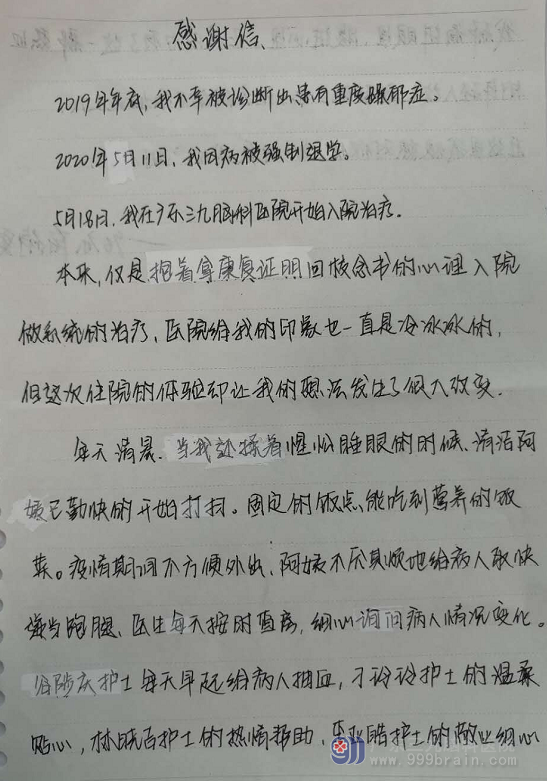 感谢信
2019年年底，我不幸被诊断出患有重度躁郁症。
2020年5月11日，我因病被强制退学。
5月18日，我在广东三九脑科医院开始入院治疗。
本来，仅是抱着拿康复证明回校念书的心理入院
做系统的治疗，医院给我的印象也一直是冷冰冰的，
但这次住院的体验却让我的想法发生了很大改变。
每天清晨，当我还揉着惺忪睡眼的时候，清洁阿
姨已勤快的开始打扫。固定的饭点，能吃到营养的饭
菜。疫情期间不方便外出，阿姨不厌其烦地给病人取快
递当跑腿，医生每天按时查房，细心询问病人情况变化。
护士每天早起给病人抽血，玲玲护士的温柔
贴心，林晓洁护士的热情帮助，护士的敬业细心
三九脑科医院
www.999brain.com